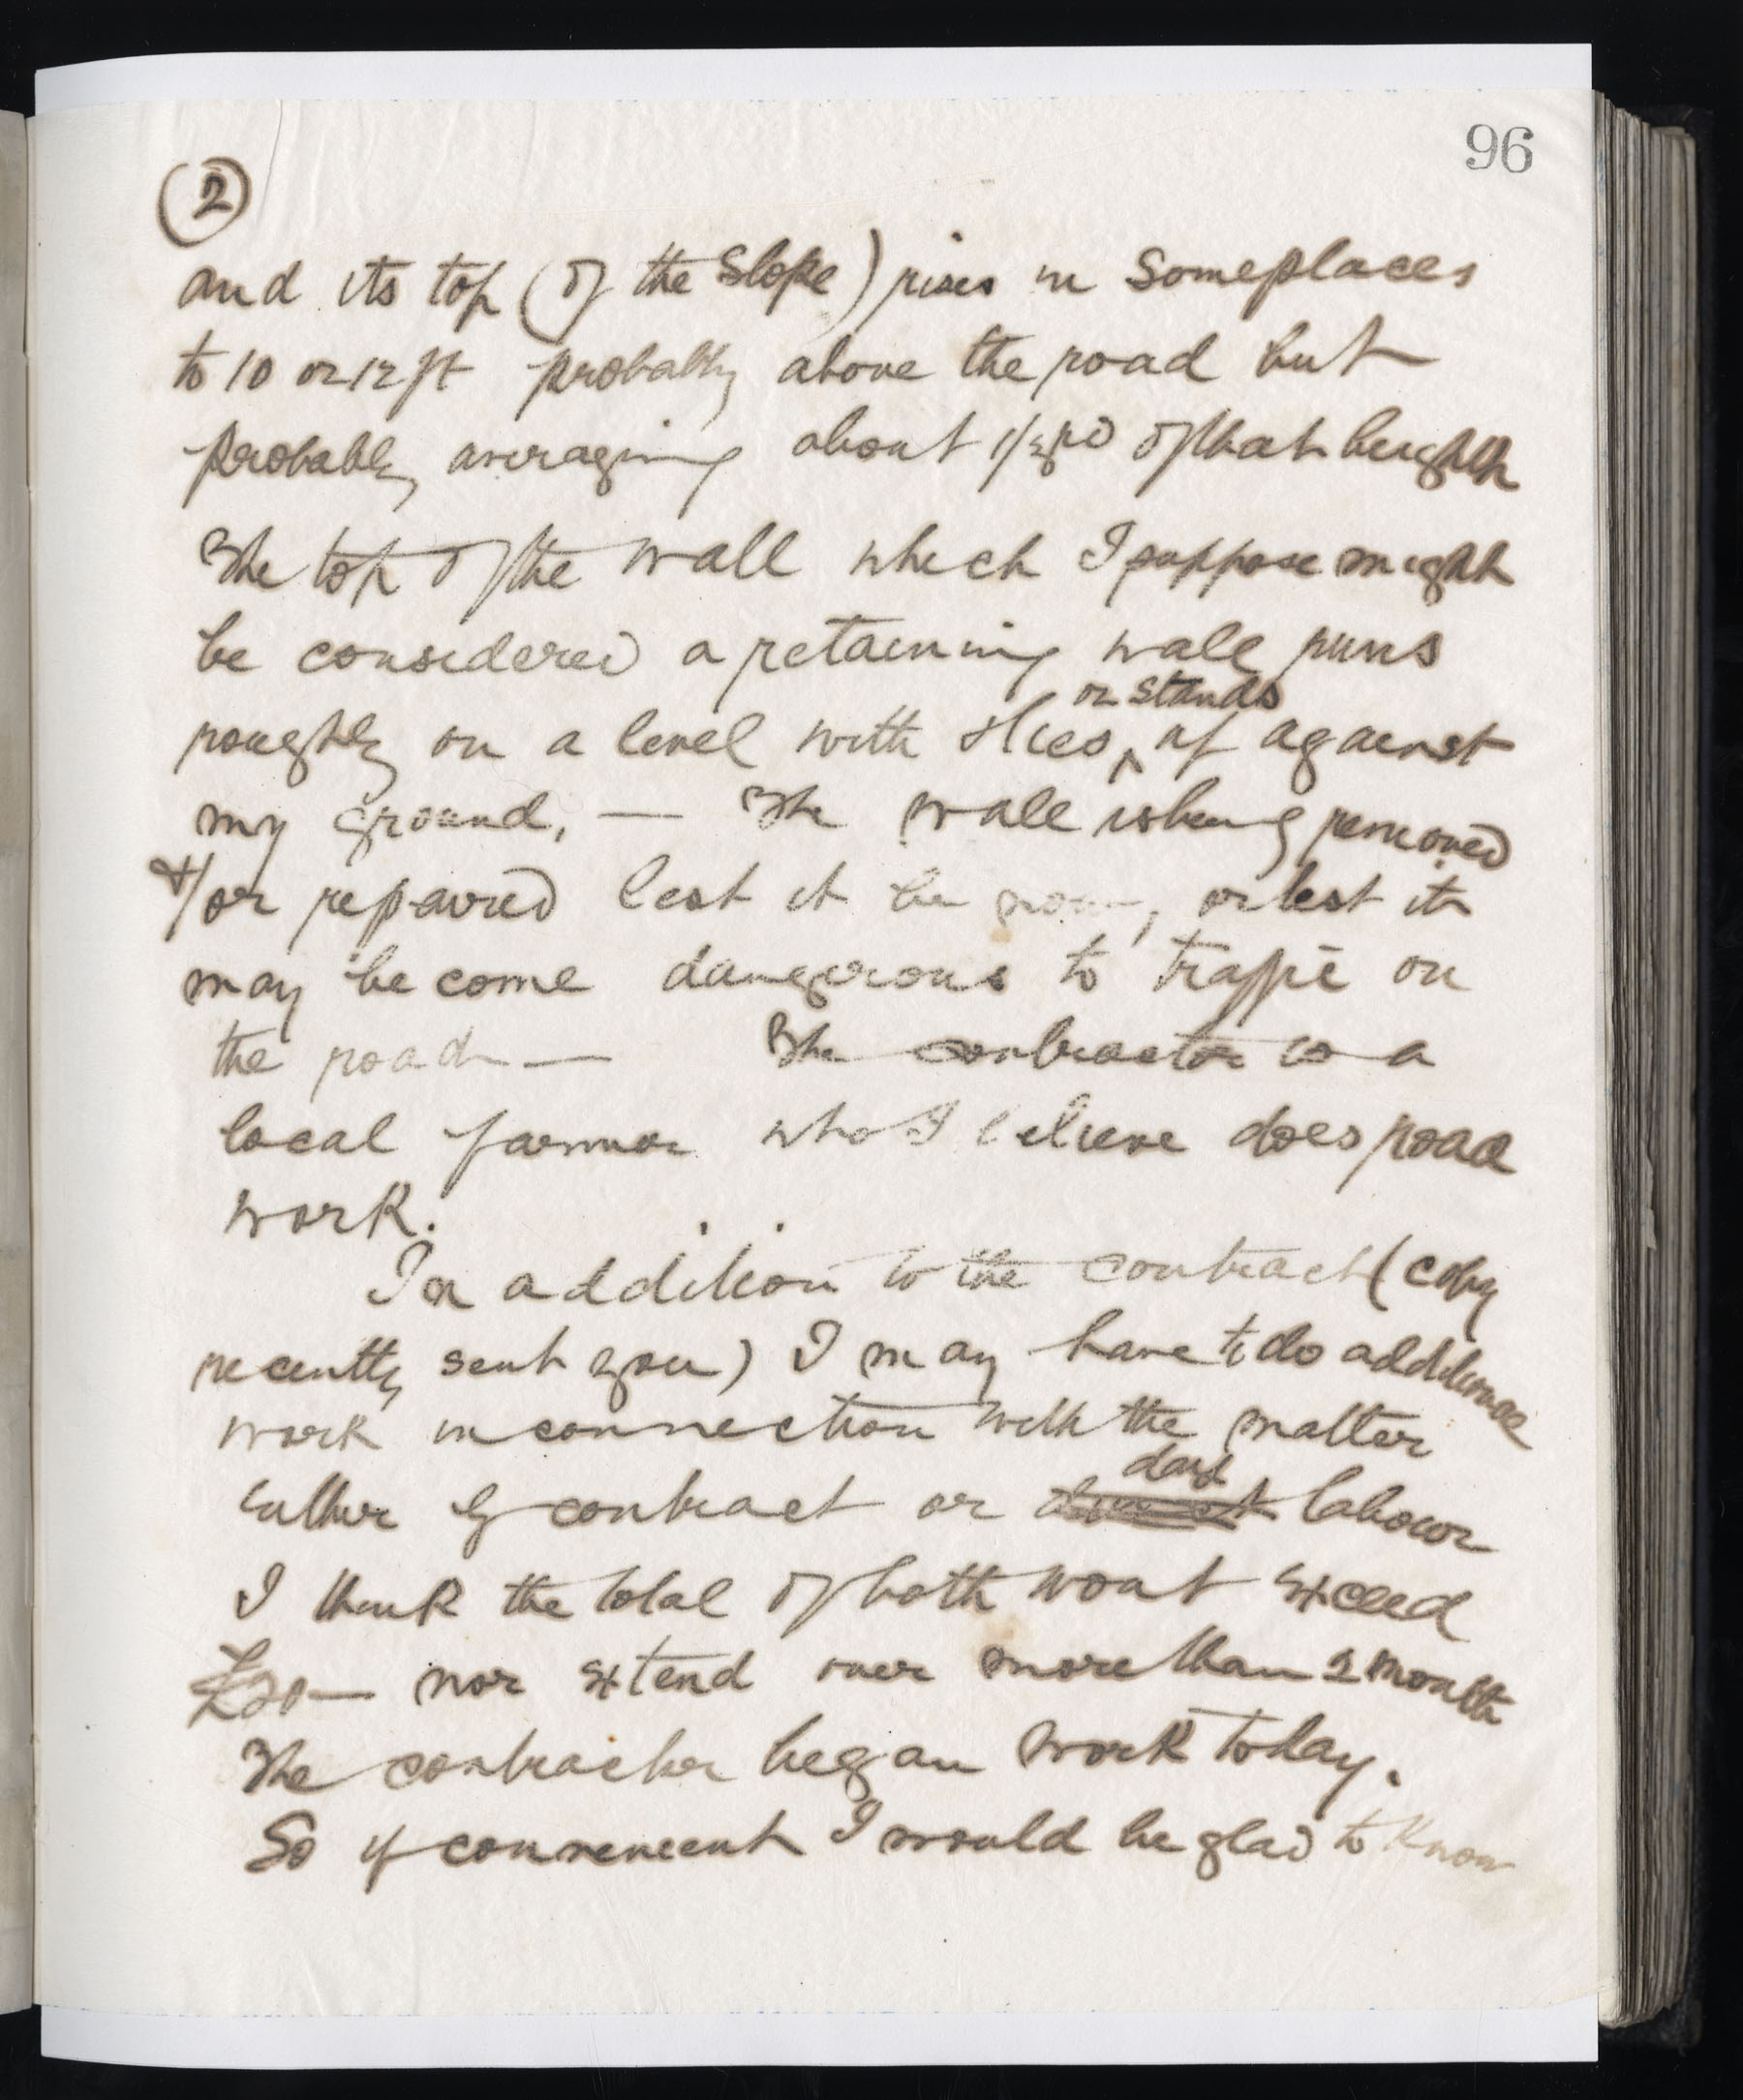 96
(2)
and its top (of the Slope) rises in Some places
to 10 or 12 ft probably above the road but
probably averaging about 1/3rd of that height
The top of the wall which I suppose might
be considered a retaining wall runs
or stands
roughly on a level with & lies, up against
my ground, — The wall is being removed
&/or repaired lest it be now, or lest it
may become dangerous to traffic on
the road — The contractor is a
local farmer who I believe does road
work.
In addition to the contract (copy
recently sent you) I may have to do additional
work in connection with the matter
day
either by contract or labour
I think the total of both wont exceed
£20— nor extend over more than 2 month
The contractor began work today.
So if convenient I would be glad to Know